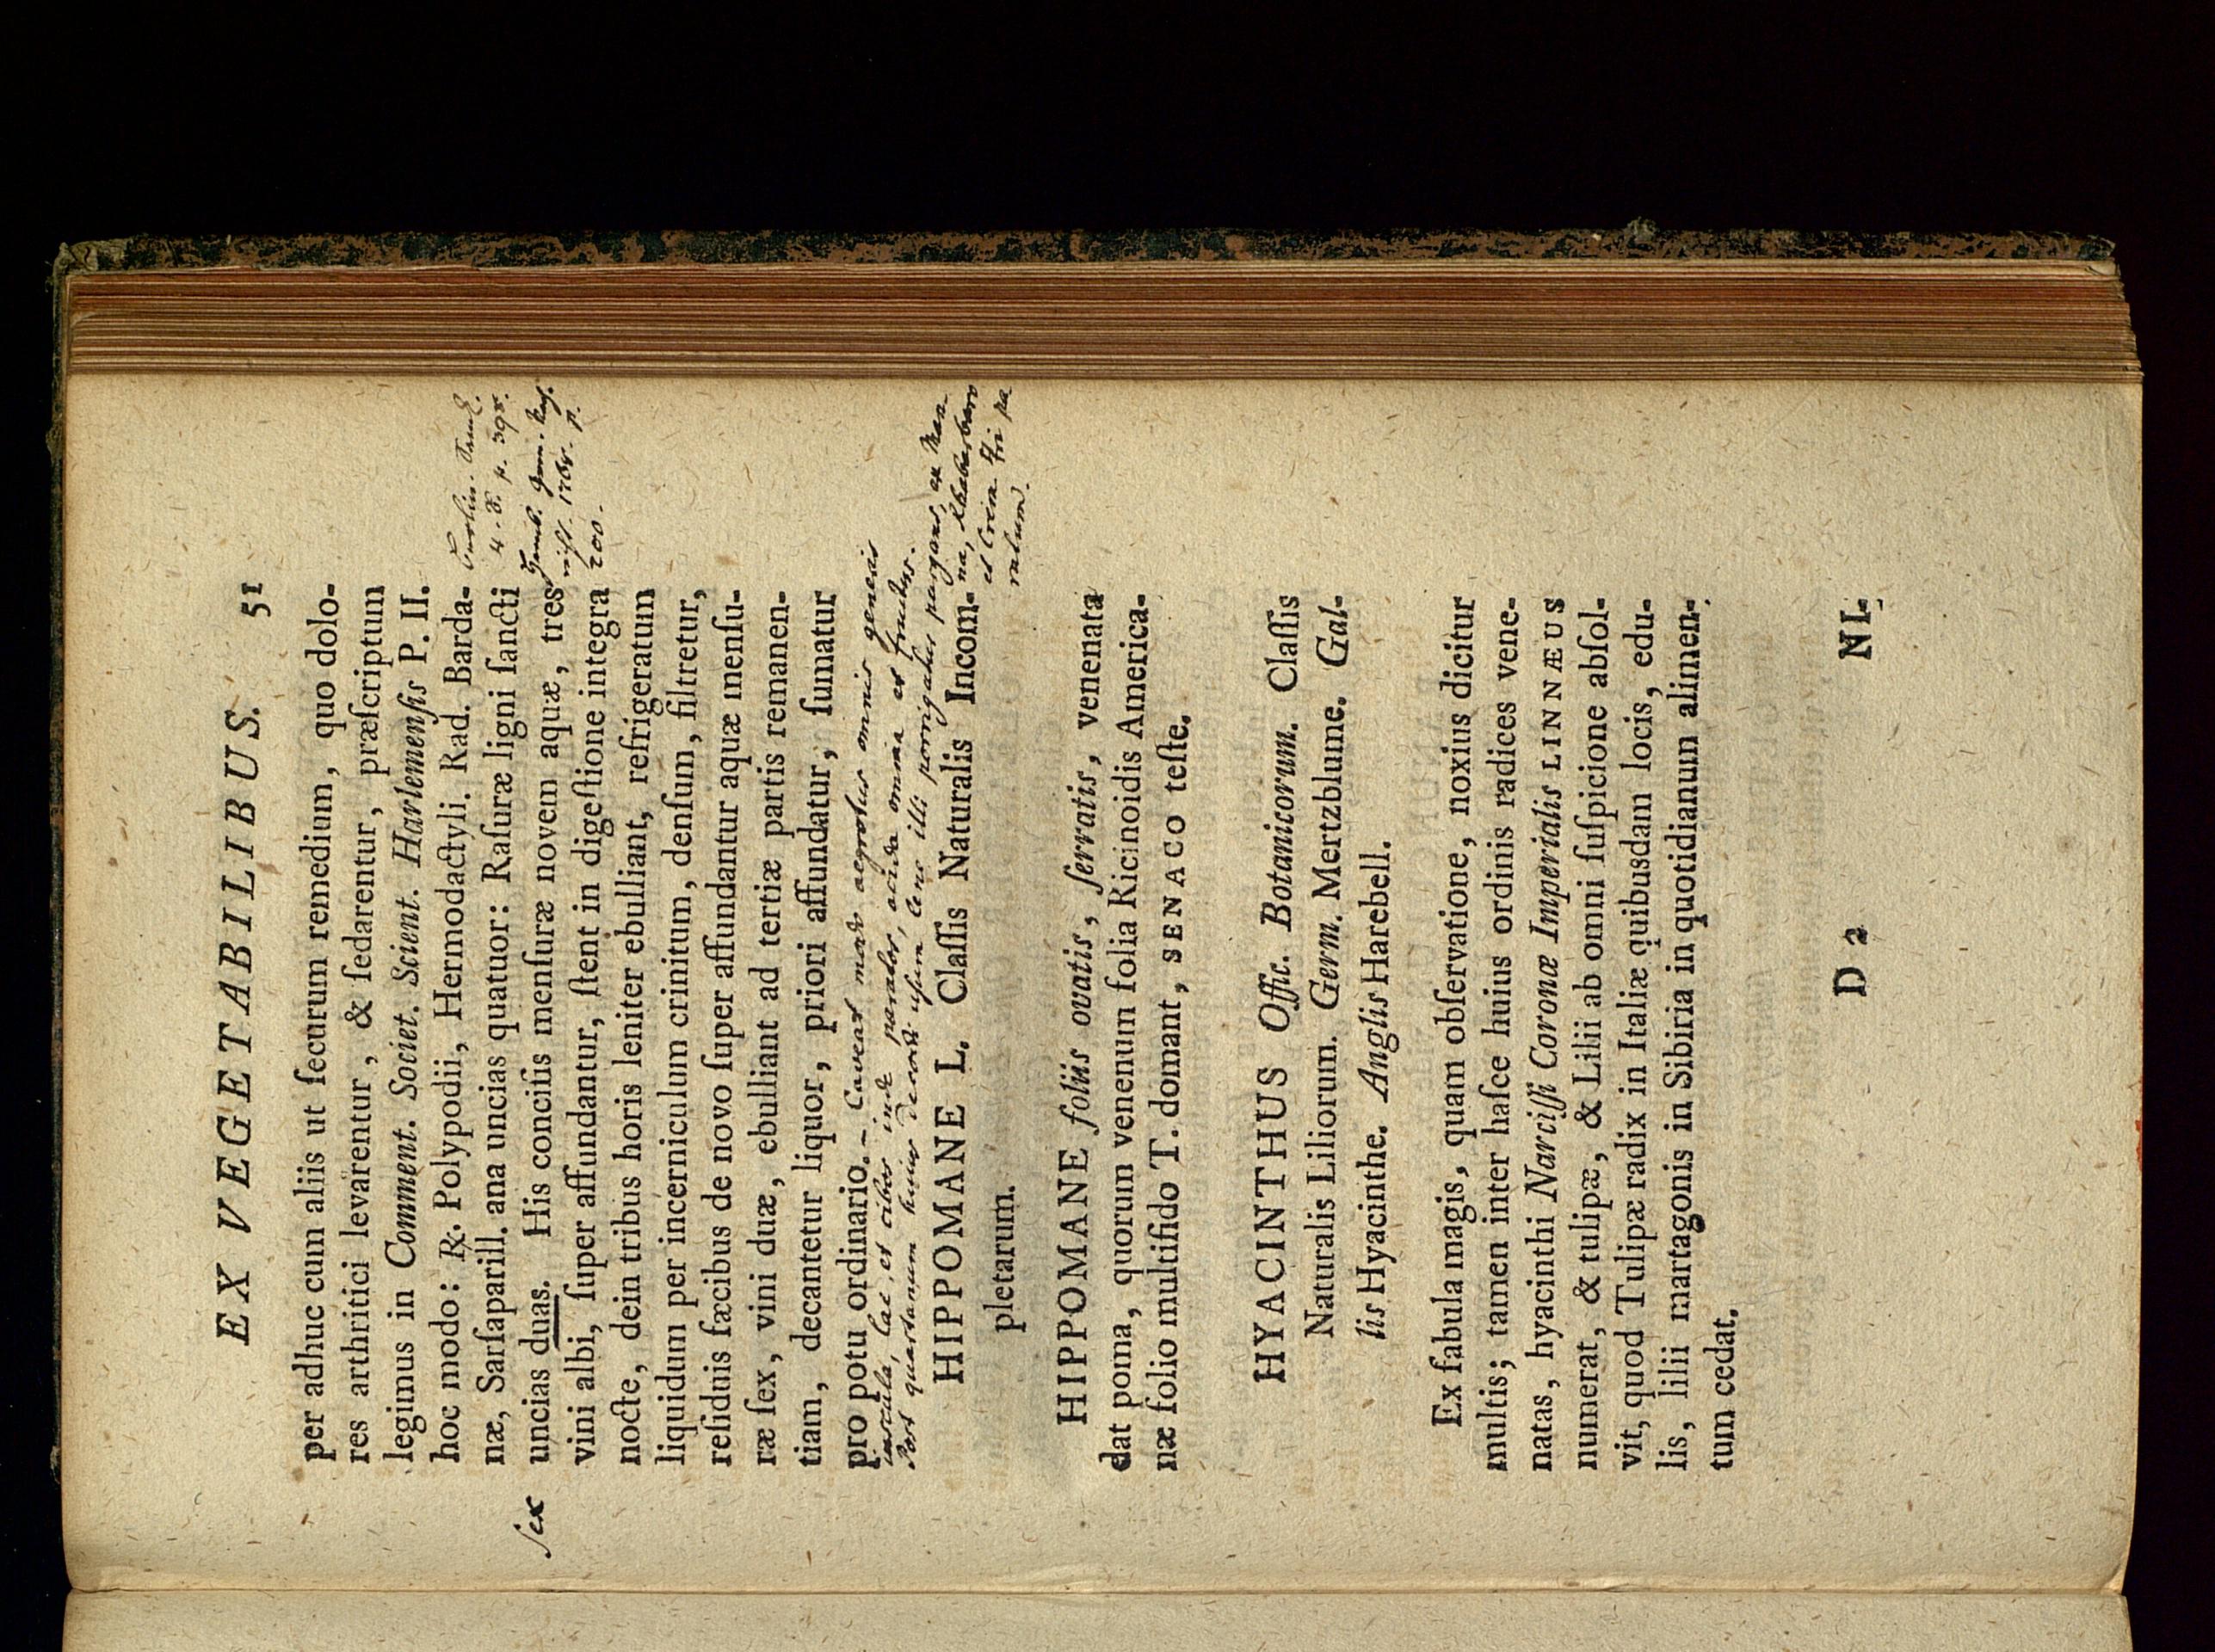 EX VEGETABILIBUS. 51
per adhuc cum aliis ut ſecurum remedium, quo dolo-
res arthritici levarentur, & ſedarentur, præſcriptum
legimus in Comment. Societ. Scient. Harlemenſis P. II.
hoc modo: ℞. Polypodii, Hermodactyli. Rad. Barda-
næ, Sarſaparill. ana uncias quatuor: Raſuræ ligni ſancti
uncias duas. His conciſis menſuræ novem aquæ, tres
vini albi, ſuper affundantur, ſtent in digeſtione integra
nocte, dein tribus horis leniter ebulliant, refrigeratum
liquidum per incerniculum crinitum, denſum, filtretur,
reſiduis fæcibus de novo ſuper affundantur aquæ menſu-
ræ ſex, vini duæ, ebulliant ad tertiæ partis remanen-
tiam, decantetur liquor, priori affundatur, ſumatur
pro potu ordinario.
ſex
4. p. 398.
1768. p.
200.
– Caveat modo aegrotus omnis generis
iuscula, lac, et cibos inde paratos, acida omnia et fructus.
Post quartanum huius decocti usum lene illi porrigatur purgans, ex Man-
na, Rhabarbaro
et Crem. Tri pa
ratum.
HIPPOMANE L. Claſſis Naturalis Incom-
pletarum.
HIPPOMANE foliis ovatis, ſerratis, venenata
dat poma, quorum venenum folia Ricinoidis America-
næ folio multifido T. domant, SENACO teſte.
HYACINTHUS Offic. Botanicorum. Claſſis
Naturalis Liliorum. Germ. Mertzblume. Gal-
lis Hyacinthe. Anglis Harebell.
Ex fabula magis, quam obſervatione, noxius dicitur
multis; tamen inter haſce huius ordinis radices vene-
natas, hyacinthi Narciſſi Coronæ Imperialis LINNÆUS
numerat, & tulipæ, & Lilii ab omni ſuſpicione abſol-
vit, quod Tulipæ radix in Italiæ quibusdam locis, edu-
lis, lilii martagonis in Sibiria in quotidianum alimen-
tum cedat.
D 2 NI-